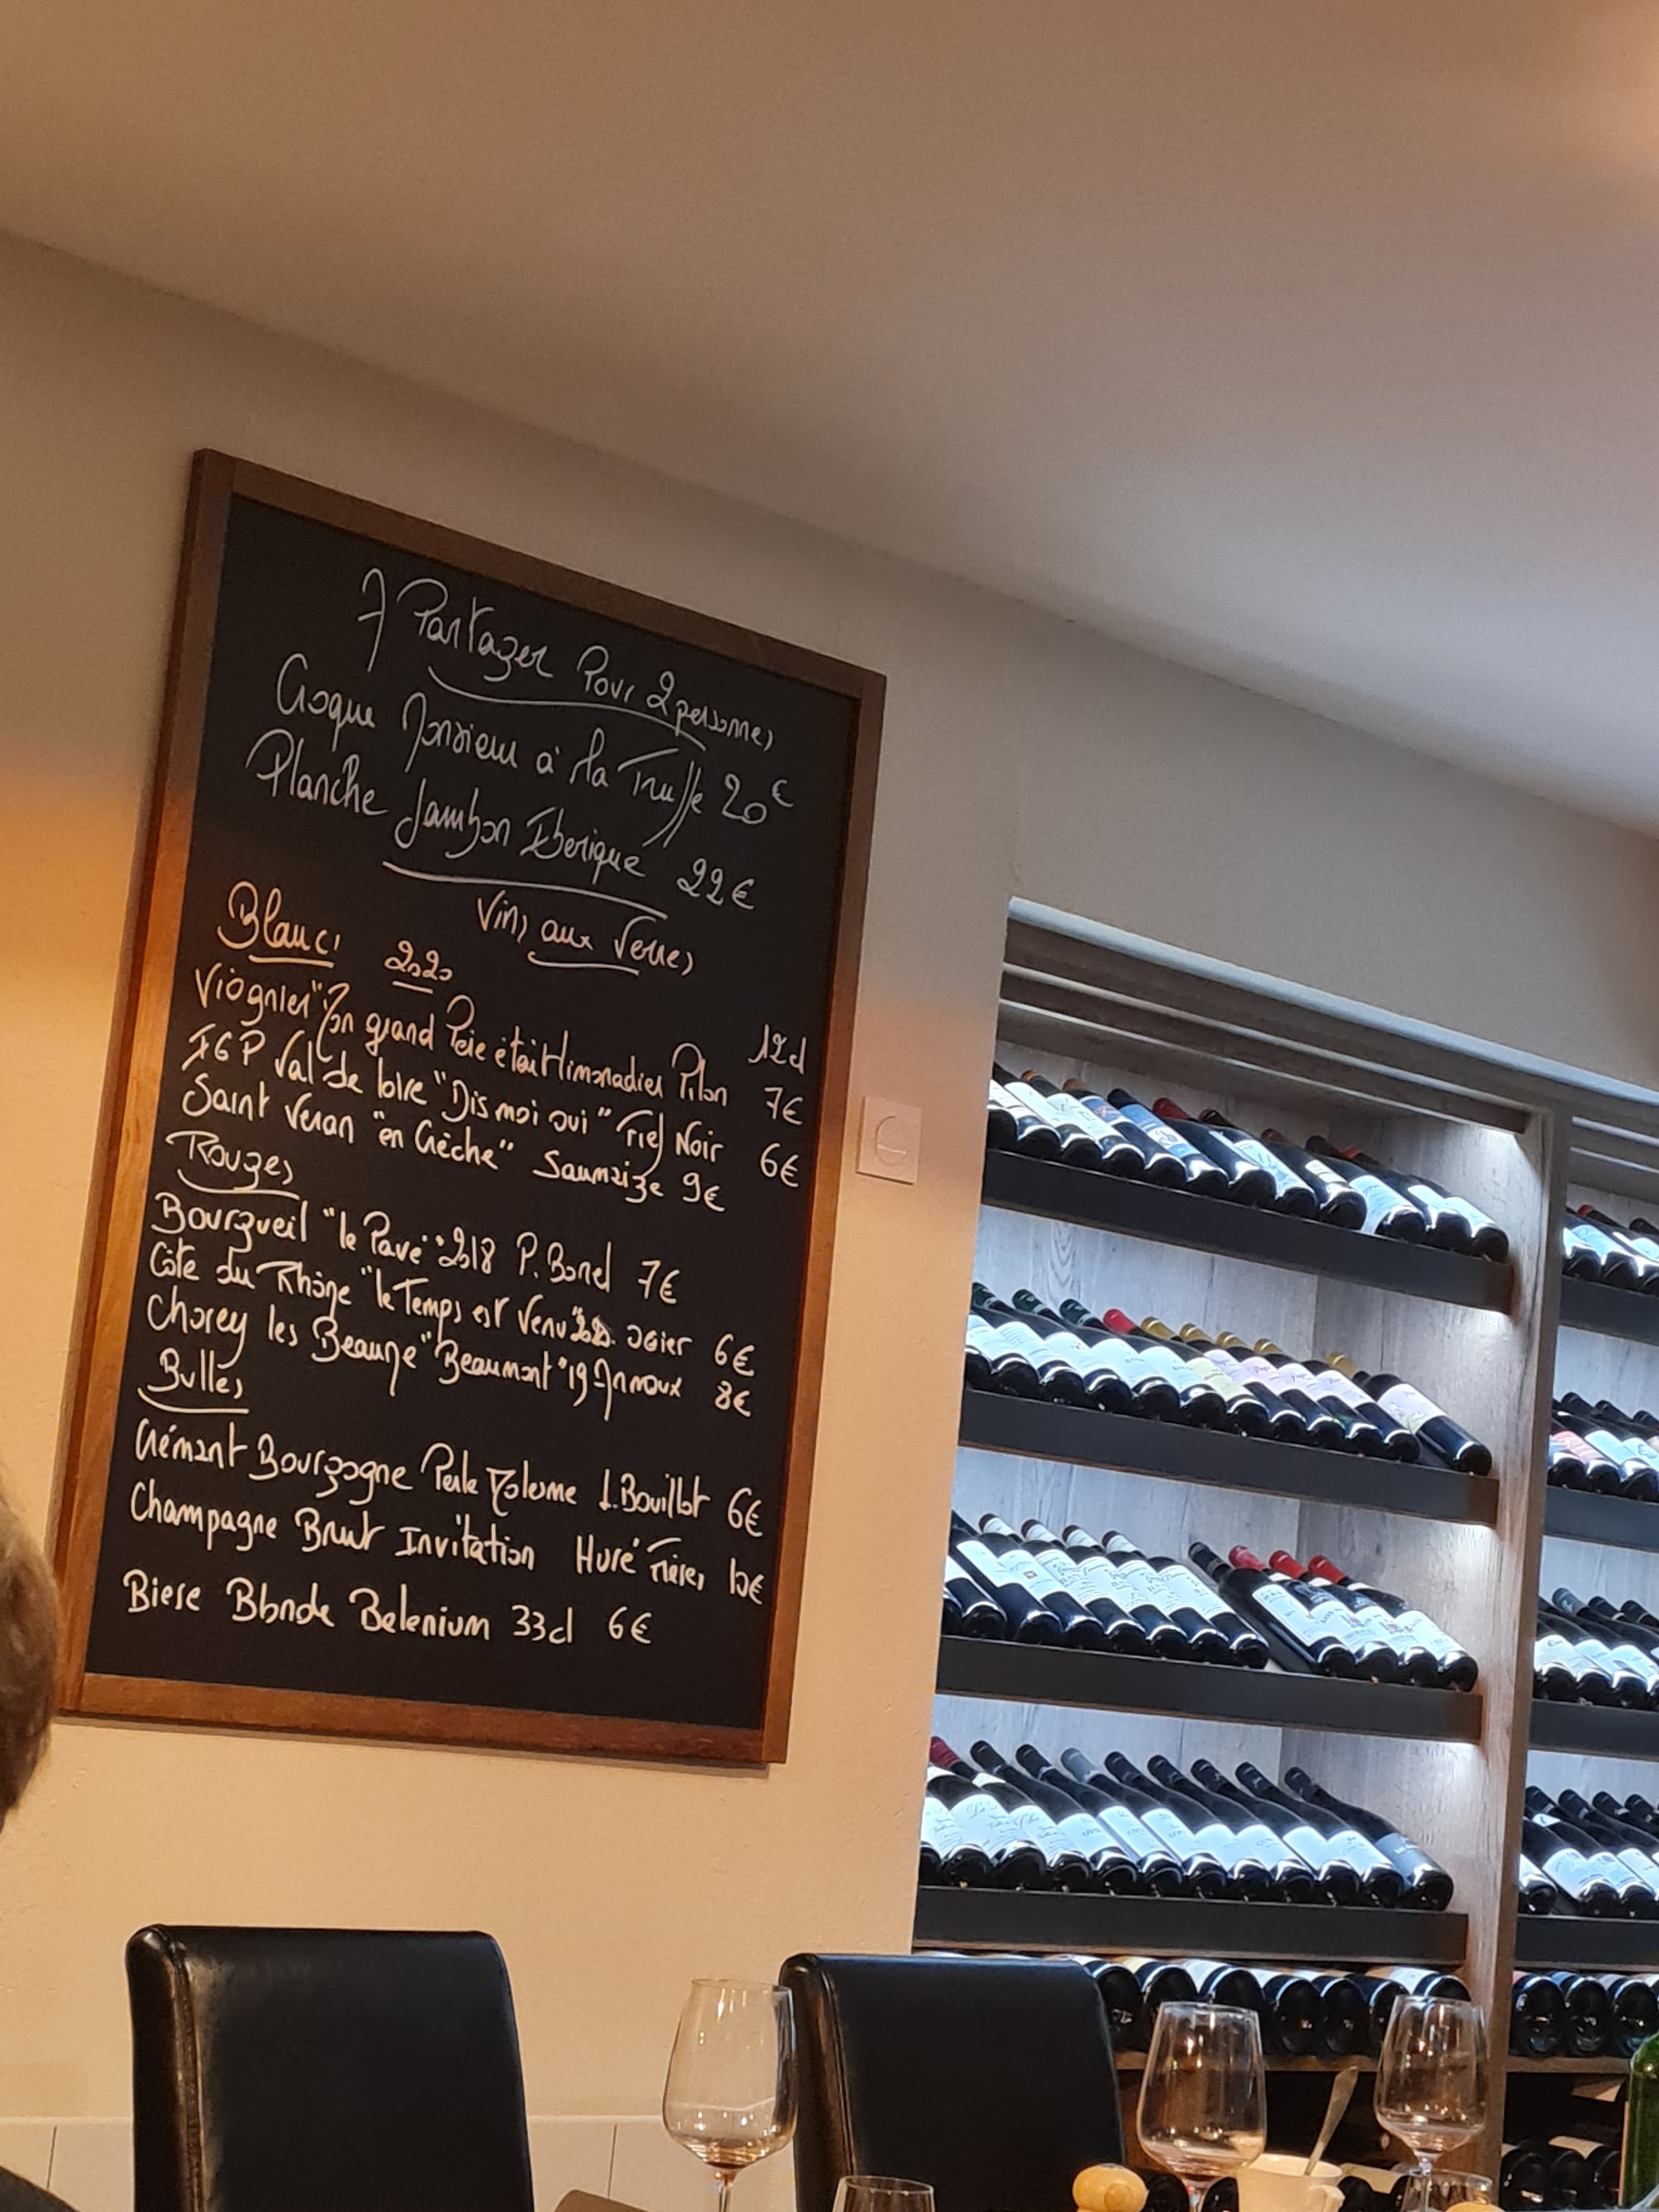 A Partager Pour 2 personnes
Croque Monsieur à la Truffe 20€
Planche Jambon Iberique 22€
Vins aux Verres
Blancs 2020
12cl
Viognier "Mon grand Père était limonadier Pilon 7€
IGP Val de loire "Dis moi oui" Fief Noir 6€
Saint Veran "en Crèche" Saumaize 9€
Rouges
Bourgueil "le Pavé" 2018 P. Borel 7€
Côte du Rhône "le Temps est Venu" ogier 6€
Chorey les Beaune "Beaumont" 19 Arnoux 8€
Bulles
Crémant Bourgogne Perle L. Bouillot 6€
Champagne Brut Invitation Huré Frères 10€
Biere Blonde Belenium 33cl 6€